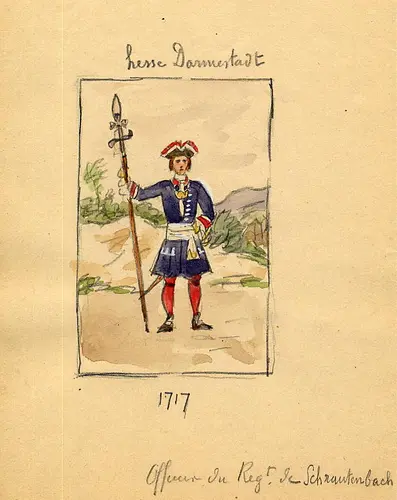 hesse Darmestadt
1717
Officier du Regt. de Schrautenbach